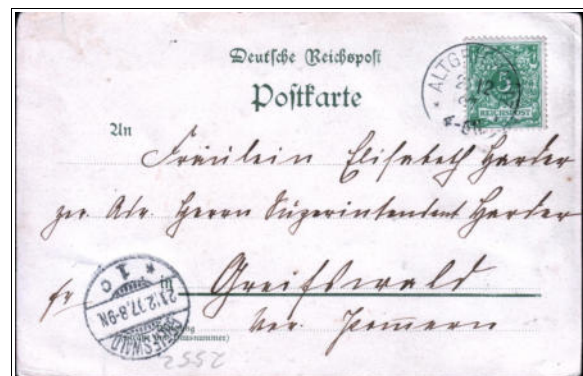 Deutsche Reichspost
Postkarte
ALTG
5
REICHSPOST
12
An
Fräulein Elisabeth Harder
per Adr. Herrn Superintendent Harder
in
Greifswald
Pommern
* 1 c
21.12.97.8-9N.
GREIFSWALD
2552